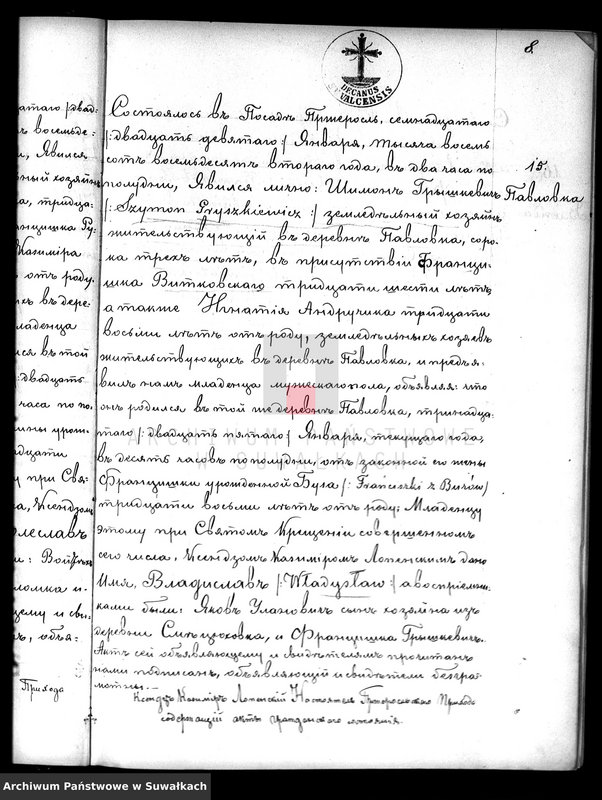 8
DECANUS
VALCENSIS
15.
Павловка
Состоялось въ Посадѣ Пржеросль, семнадцатаго
/:двадцать девятаго:/ Января, тысяча восемь
сотъ восемьдесятъ втораго года, въ два часа по
полудни, Явился лично: Шимонъ Грышкевичъ
/: Szymon Gryszkiewicz :/ земледѣльный хозяинъ
жительствующій въ деревнѣ Павловка, соро-
ка трехъ лѣтъ, въ присутствіи Францы-
шка Витковскаго тридцати шести лѣтъ
а также Игнатія Андручика тридцати
восьми лѣтъ отъ роду, земледѣльныхъ хозяевъ
жительствующихъ въ деревнѣ Павловка, и предъя-
вилъ намъ младенца мужескаго пола, объявляя: что
онъ родился въ той же деревнѣ Павловка, тринадца-
таго /:двадцать пятаго:/ Января, текущаго года,
въ десять часовъ по полудни, отъ законной его жены
Францишки урожденной Буза /: Franciszki z Buzów/
тридцати восьми лѣтъ отъ роду; Младенцу
этому при Святомъ Крещеніи совершенномъ
сего числа, Ксендзомъ Казиміромъ Лопенскимъ дано
Имя, Владиславъ /: Władysław :/ а воспріемни-
ками были: Яковъ Улановичъ сынъ хозяина изъ
деревни и Францишка Грышкевичъ.
Актъ сей объявляющему и свидѣтелямъ прочитанъ
нами подписанъ, объявляющій и свидѣтели безгра-
мотны.
Ксендзъ Казиміръ Лопенскій Настоятель Пржеросльскаго Прихода
содержащій акты гражданскаго состоянія.
Прихода
ARCHIWUM PAŃSTWOWE
W SUWAŁKACH
Archiwum Państwowe w Suwałkach